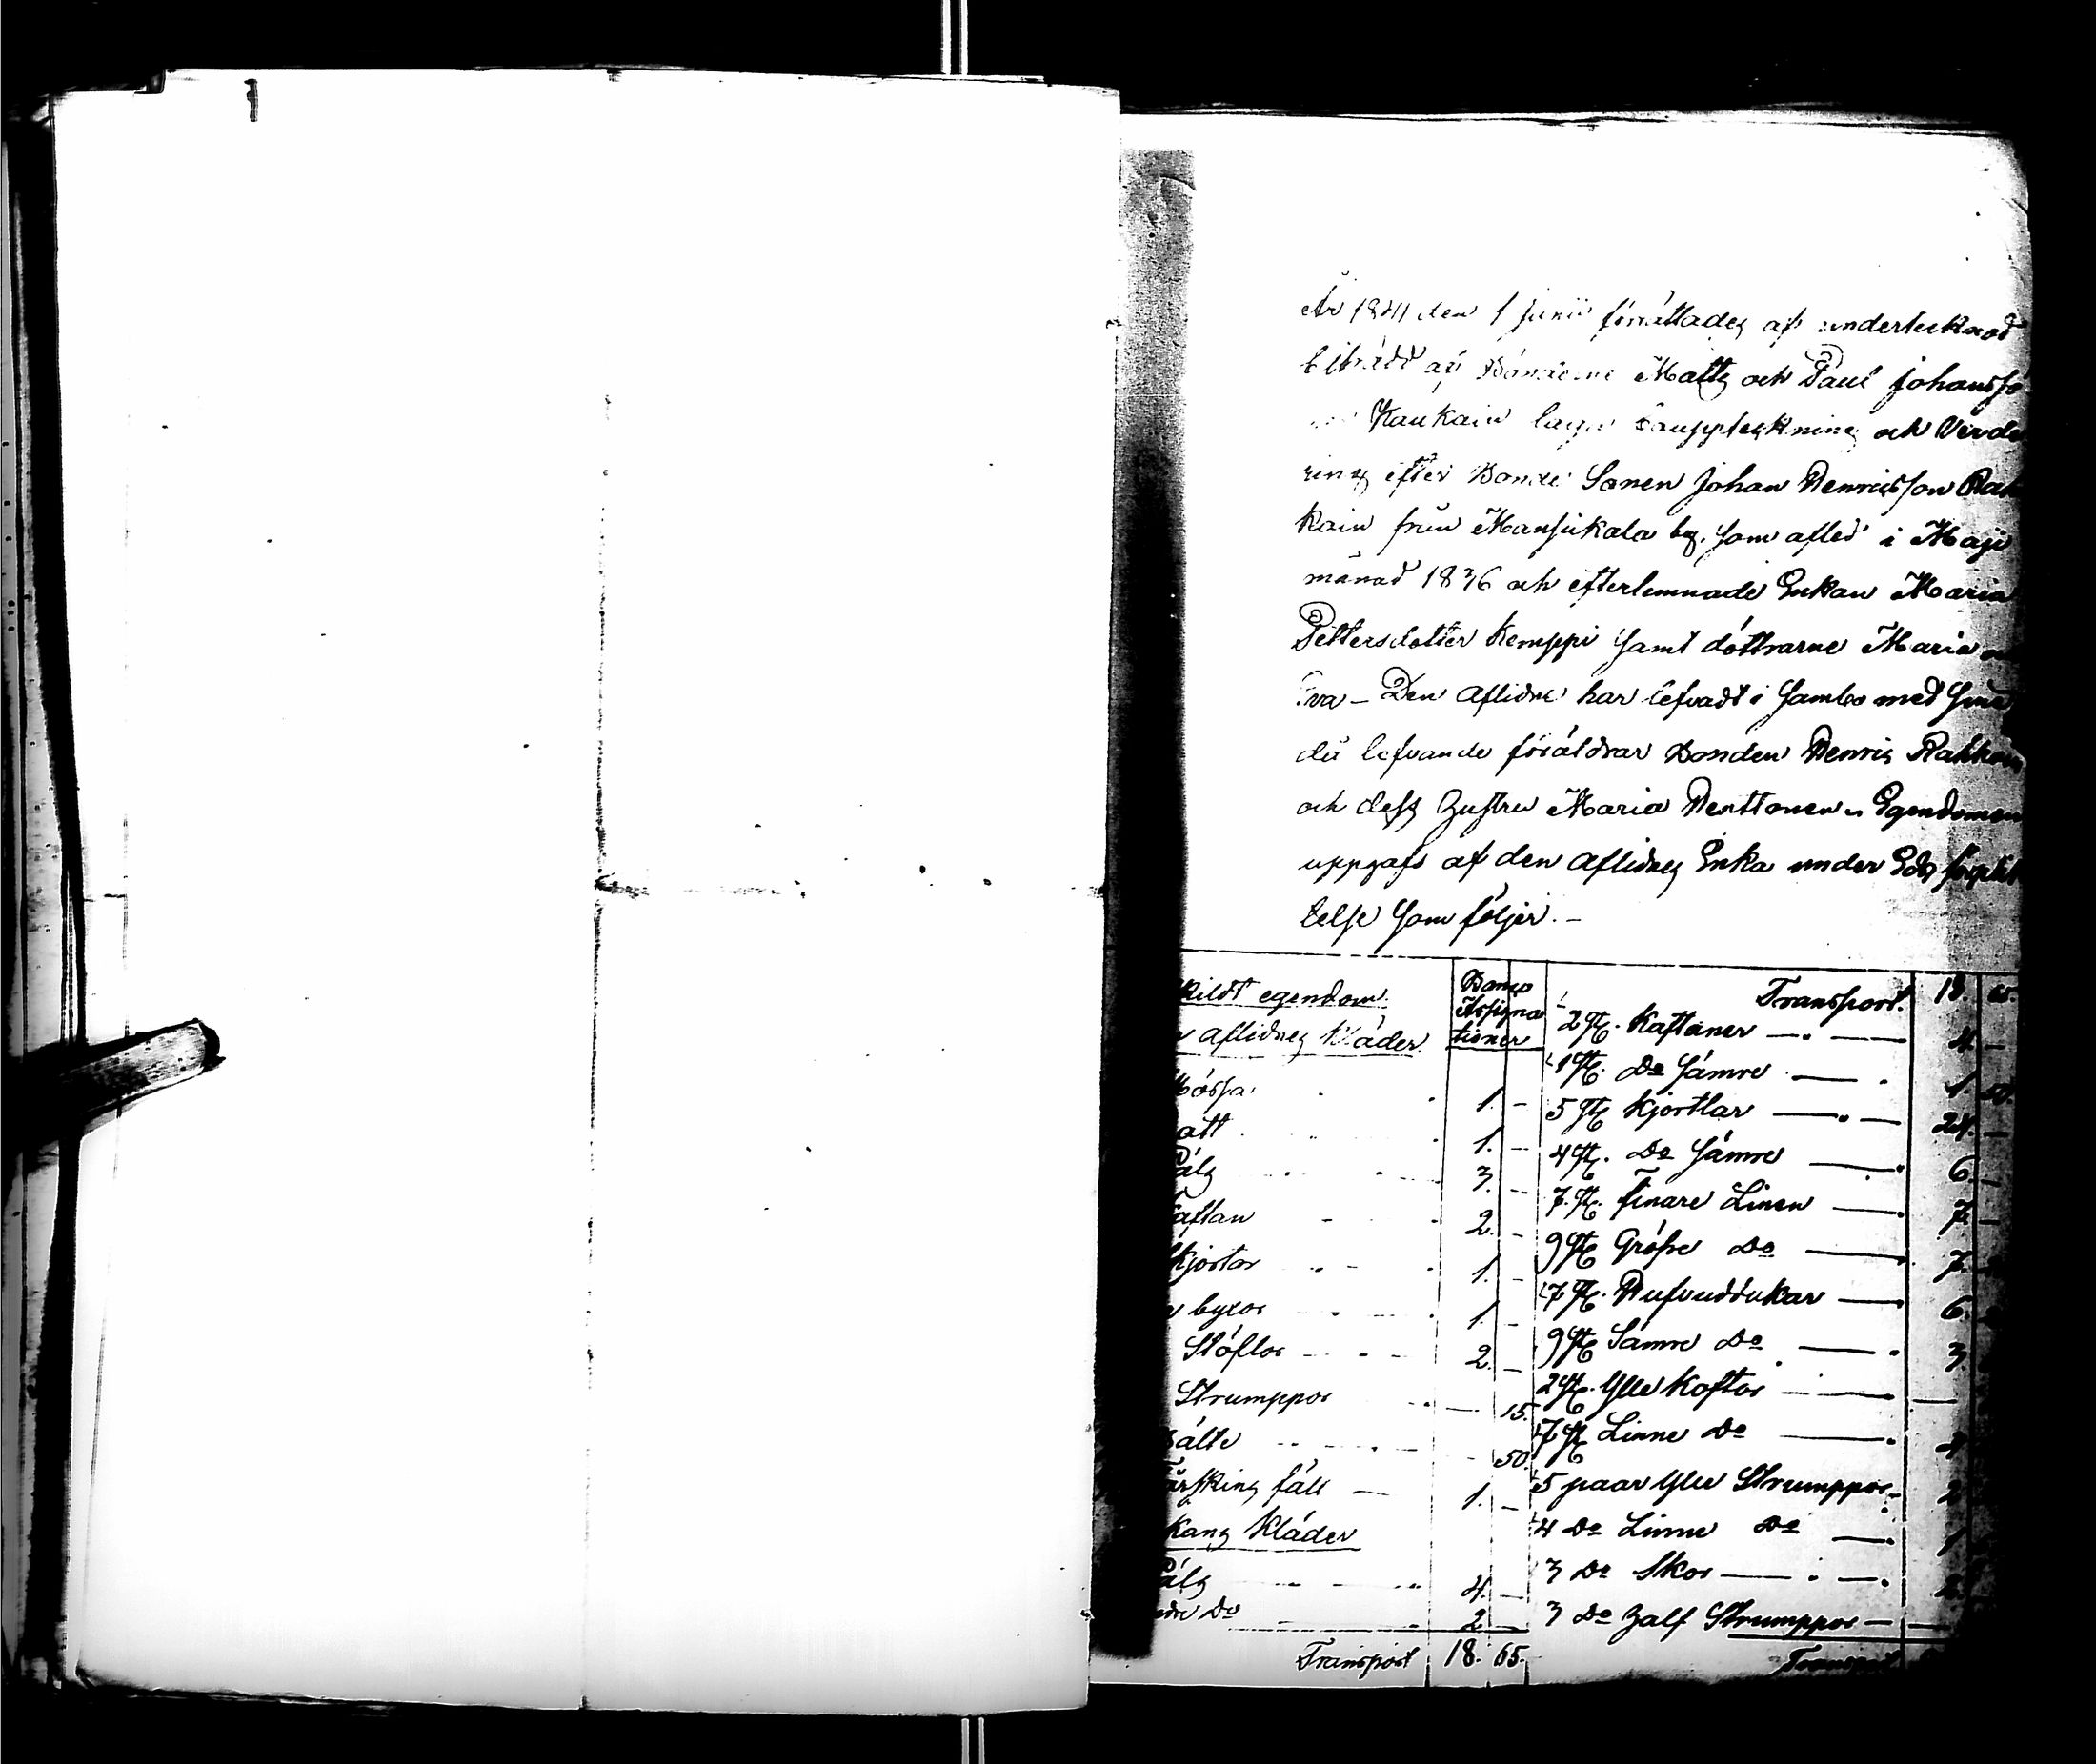 År 1841 den 1 Junii förrättades af undertecknad
biträdd af Bönderne Matts och Paul Johansso
Kaukain laga bouppteckning och Verde
ring efter Bonde Sonen Johan Henricsson Rah
kain från Mansikala by, som afled i Maji
månad 1836 och efterlemnade Enkan Maria
Pettersdotter Kemppi samt döttrarne Maria
Eva – Den Aflidne har lefvadt i Sambo med sine
då lefvande föräldrar Bonden Henric Rahkain
och dess Hustru Maria Henttonen. Egendomen
uppgafs af den Aflidnes Enka under Eds förplik
telse som följer. –
skildt egendom.
Banco Assigna tioner
aflidnes kläder
Mössa 1. –
att 1. –
älg 3. –
aftan 2. –
skjortor 1. –
byxor 1. –
Stöflor 2. –
Strumppor – 15.
Bälte – 50.
fårskins fäll 1. –
kans kläder
Pälg 4. –
dre Do 2 –
Transport 18. 65.
Transport. 18. 65.
2 st. Kaftaner 4 –
1 st. Do Sämre 1. 50.
5 st. Kjortlar 24. –
4 st. Do Sämre 6. –
7. st. finare Linen 7. –
9 st. Gröfre Do 7.
7 st. Hufvuddukar 6.
9 st. Sämre Do 3.
2 st. Ylle Koftor –
7 st. Linne Do 4
5 paar Ylle Strumppor 2
4 Do Linne Do 1
3 Do Skor 2
3 Do Half Strumppor –
Transport